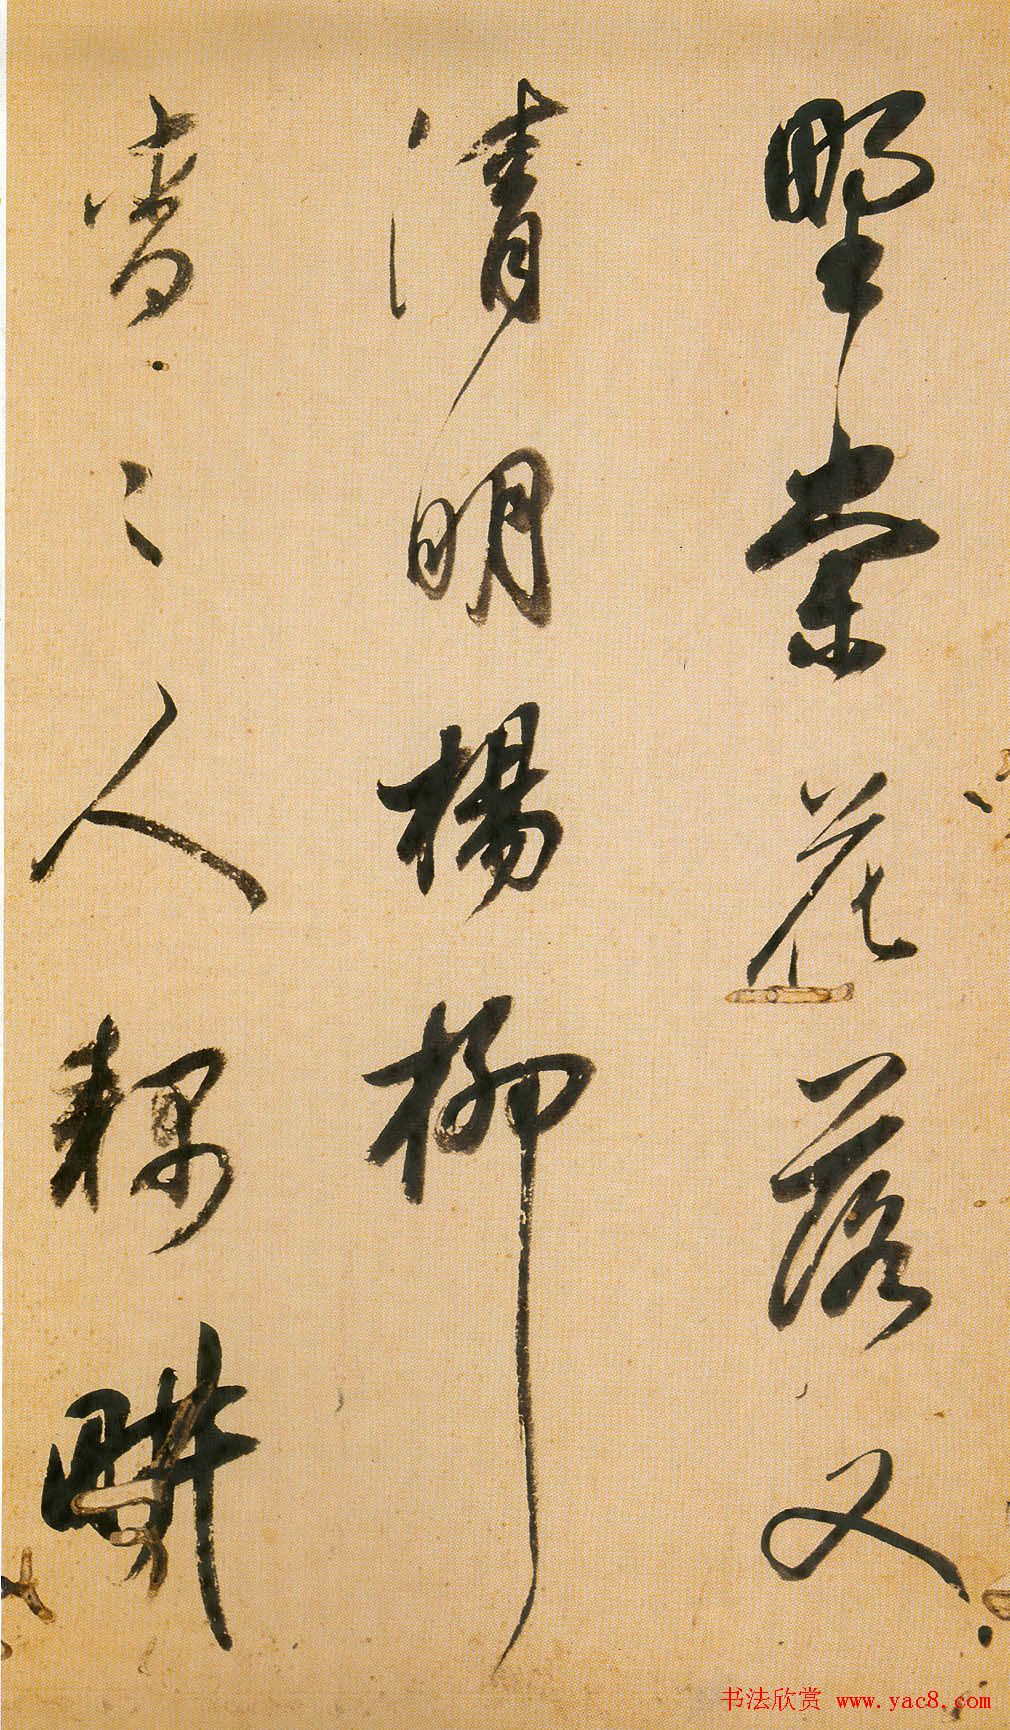 野棠花落又
清明楊柳
青々人耦畊
书法欣赏 www.yac8.com